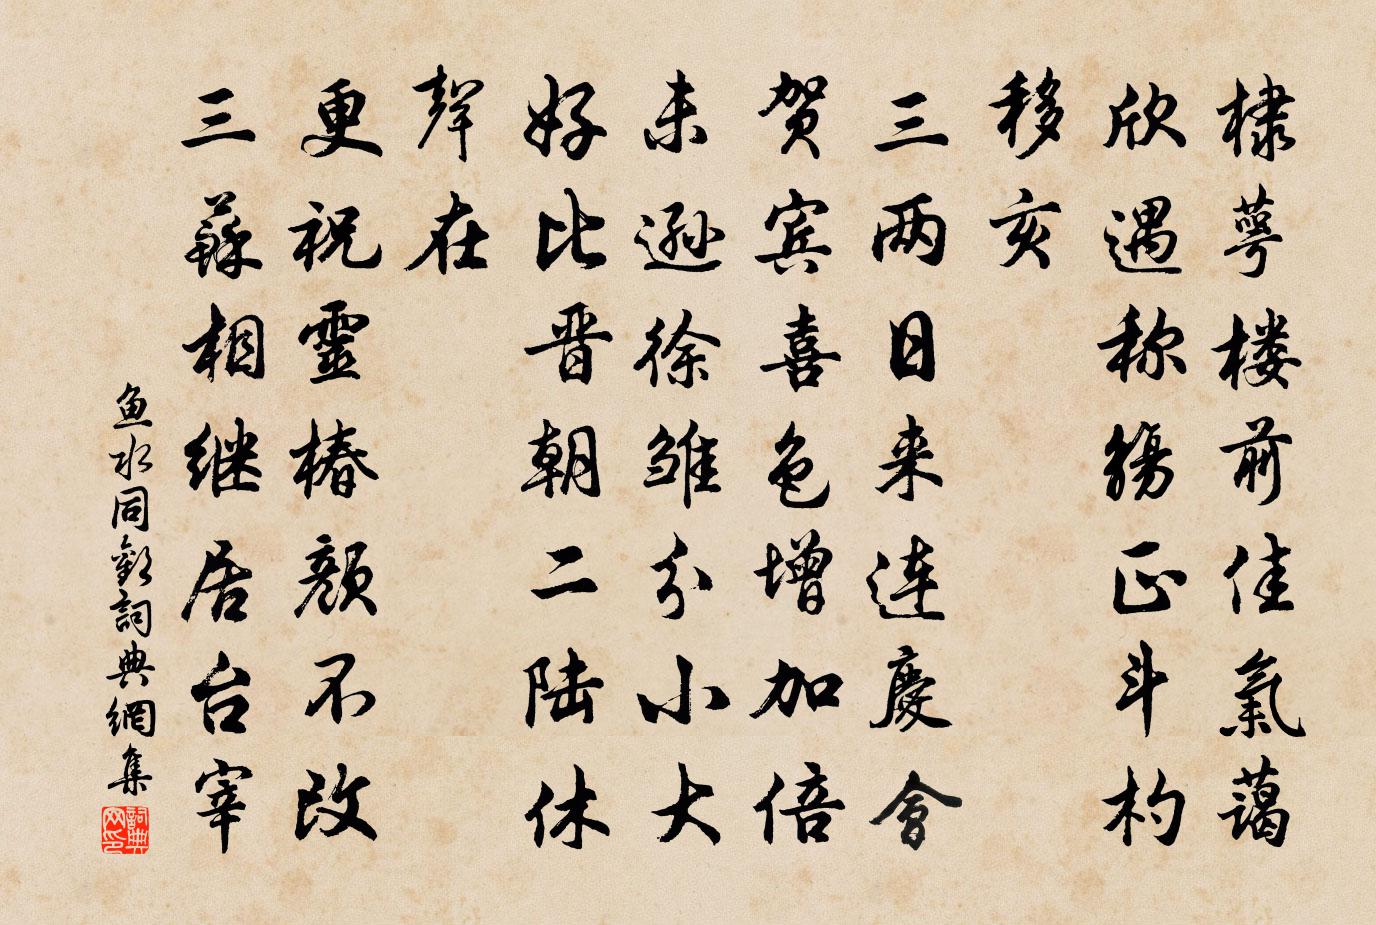 棣萼楼前佳氣蔼
欣遇称觞正斗杓
移亥
三两日来連慶會
贺宾喜色增加倍
未遜徐雏分小大
好比晋朝二陆休
聲在
更祝靈椿颜不改
三蘇相继居台宰
鱼水同歡詞典網集
詞典网印